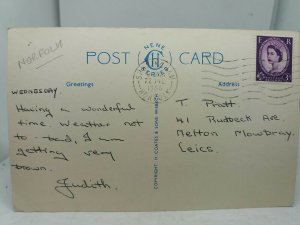 NORFOLK
NENE
POST CARD
SERIES
Greetings
Address
WEDNESDAY
Having a wonderful
time weather not
to bad, I am
getting very
brown.
Judith.
COPYRIGHT: H. COATES & SONS WISBECH
T. Pratt.
41 Rudbeck Ave
Melton Mowbray.
Leics.